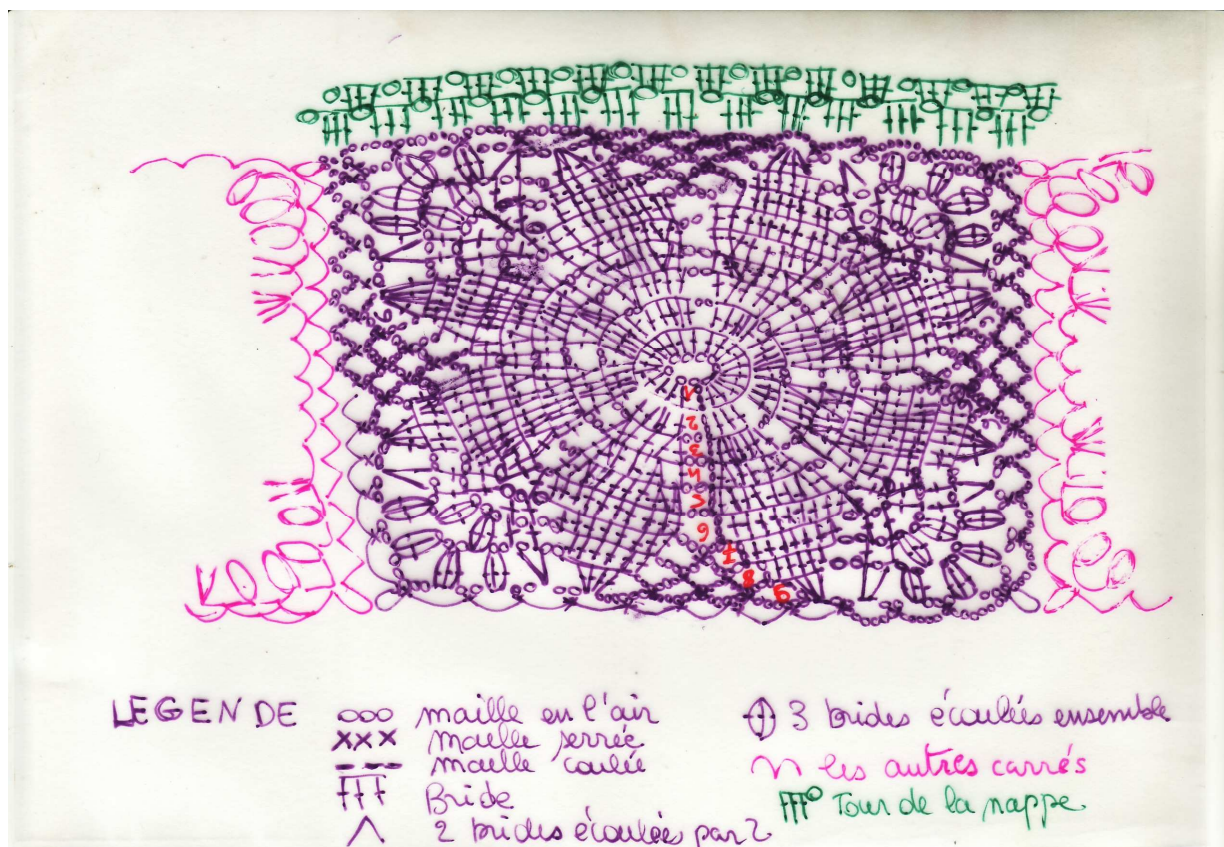 1
2
3
4
5
6
7
8
9
LEGENDE
maille en l'air
maille serrée
maille coulée
Bride
2 brides écoulées par 2
3 brides écoulées ensemble
les autres carrés
Tour de la nappe